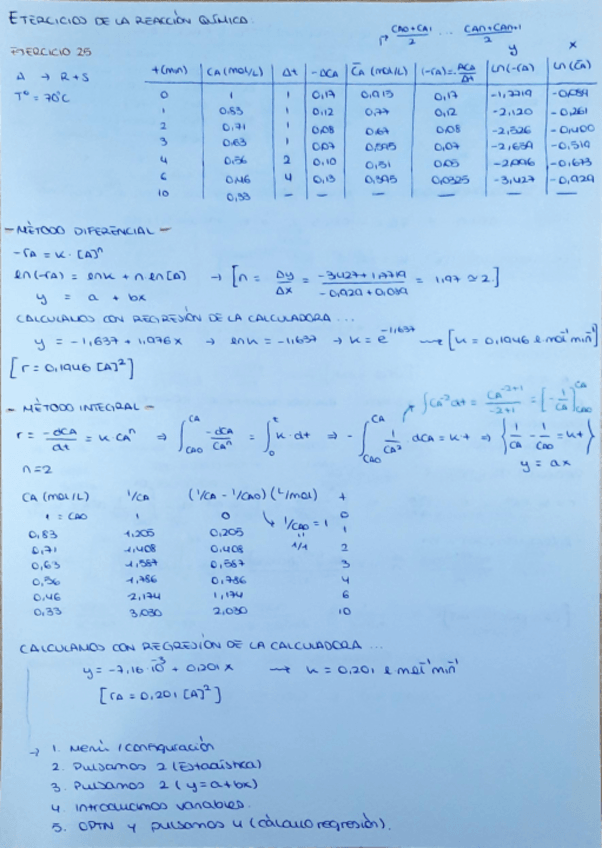 EJERCICIOS DE LA REACCIÓN QUÍMICA.
CA0+CA1/2 ... CAn+CAn+1/2
EJERCICIO 25
y x
t(min) CA(mol/L) Δt -ΔCA C̄A (mol/L) (-rA)=-ΔCA/Δt Ln(-rA) Ln(C̄A)
A → R+S
Tº = 70ºC
0 1 1 0,17 0,915 0,17 -1,7719 -0,089
1 0,83 1 0,12 0,77 0,12 -2,120 -0,261
2 0,71 1 0,08 0,67 0,08 -2,526 -0,400
3 0,63 1 0,07 0,595 0,07 -2,659 -0,519
4 0,56 2 0,10 0,51 0,05 -2,996 -0,673
6 0,46 4 0,13 0,395 0,0325 -3,427 -0,929
10 0,33 — — — — — —
- MÉTODO DIFERENCIAL -
-rA = K · [A]^n
ln(-rA) = lnk + n ln[A] → [n = Δy/Δx = (-3427+1,7719)/(-0,929+0,089) = 1,97 ≃ 2]
y = a + bx
CALCULAMOS CON REGRESIÓN DE LA CALCULADORA ...
y = -1,637 + 1,976x → lnk = -1,637 → k = e^-1,637 → [k = 0,1946 l mol⁻¹ min⁻¹]
[r = 0,1946 [A]²]
∫CA⁻² dt = CA^(-2+1)/(-2+1) = [-1/CA] CA CA0
- MÉTODO INTEGRAL -
r = -dCA/dt = k CA^n ⇒ ∫CA0^CA -dCA/CA^n = ∫0^t k·dt ⇒ -∫CA0^CA 1/CA² dCA = kt ⇒ {1/CA - 1/CA0 = kt}
n=2
y = ax
CA (mol/L) 1/CA (1/CA - 1/CA0) (L/mol) t
1 = CA0 1 0 ↳ 1/CA0 = 1 0
0,83 1,205 0,205 1/1 1
0,71 1,408 0,408 2
0,63 1,587 0,587 3
0,56 1,786 0,786 4
0,46 2,174 1,174 6
0,33 3,030 2,030 10
CALCULAMOS CON REGRESIÓN DE LA CALCULADORA ...
y = -7,16·10⁻³ + 0,201x → k = 0,201 l mol⁻¹ min⁻¹
[rA = 0,201 [A]²]
→ 1. Menú / configuración
2. Pulsamos 2 (Estadística)
3. Pulsamos 2 (y=a+bx)
4. Introducimos variables.
5. OPTN y pulsamos 4 (cálculo regresión).